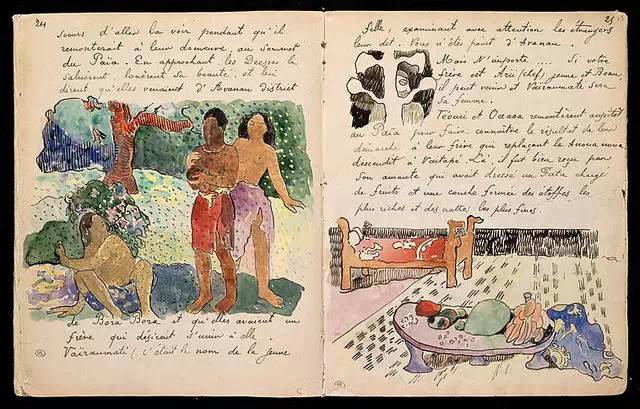 24
soeurs d'aller la voir pendant qu'il
remonterait à leur demeure, au sommet
du Païa. En approchant, les Déesses la
saluèrent, louèrent sa beauté, et lui
dirent qu'elles venaient d'Avanau District
de Bora Bora et qu'elles avaient un
frère qui désirait s'unir à elle.
Vaïraümati (c'était le nom de la jeune
25
fille, examinant avec attention les étrangers
leur dit. Vous n'êtes point d'Avanau.
Mais N'importe.... Si votre
frère est Arii (chef) jeune et Beau,
il peut venir et Vaïraümati sera
Sa femme.
Téouri et Oaaoa remontèrent aussitôt
au Païa pour faire connaître le résultat de leur
démarche à leur frère qui replaçant le Anoua noua
descendit à Vaitapé. Là, il fut bien reçu par
son amante qui avait dressé un Fata chargé
de fruits et une couche formée des étoffes les
plus riches et des nattes les plus fines.